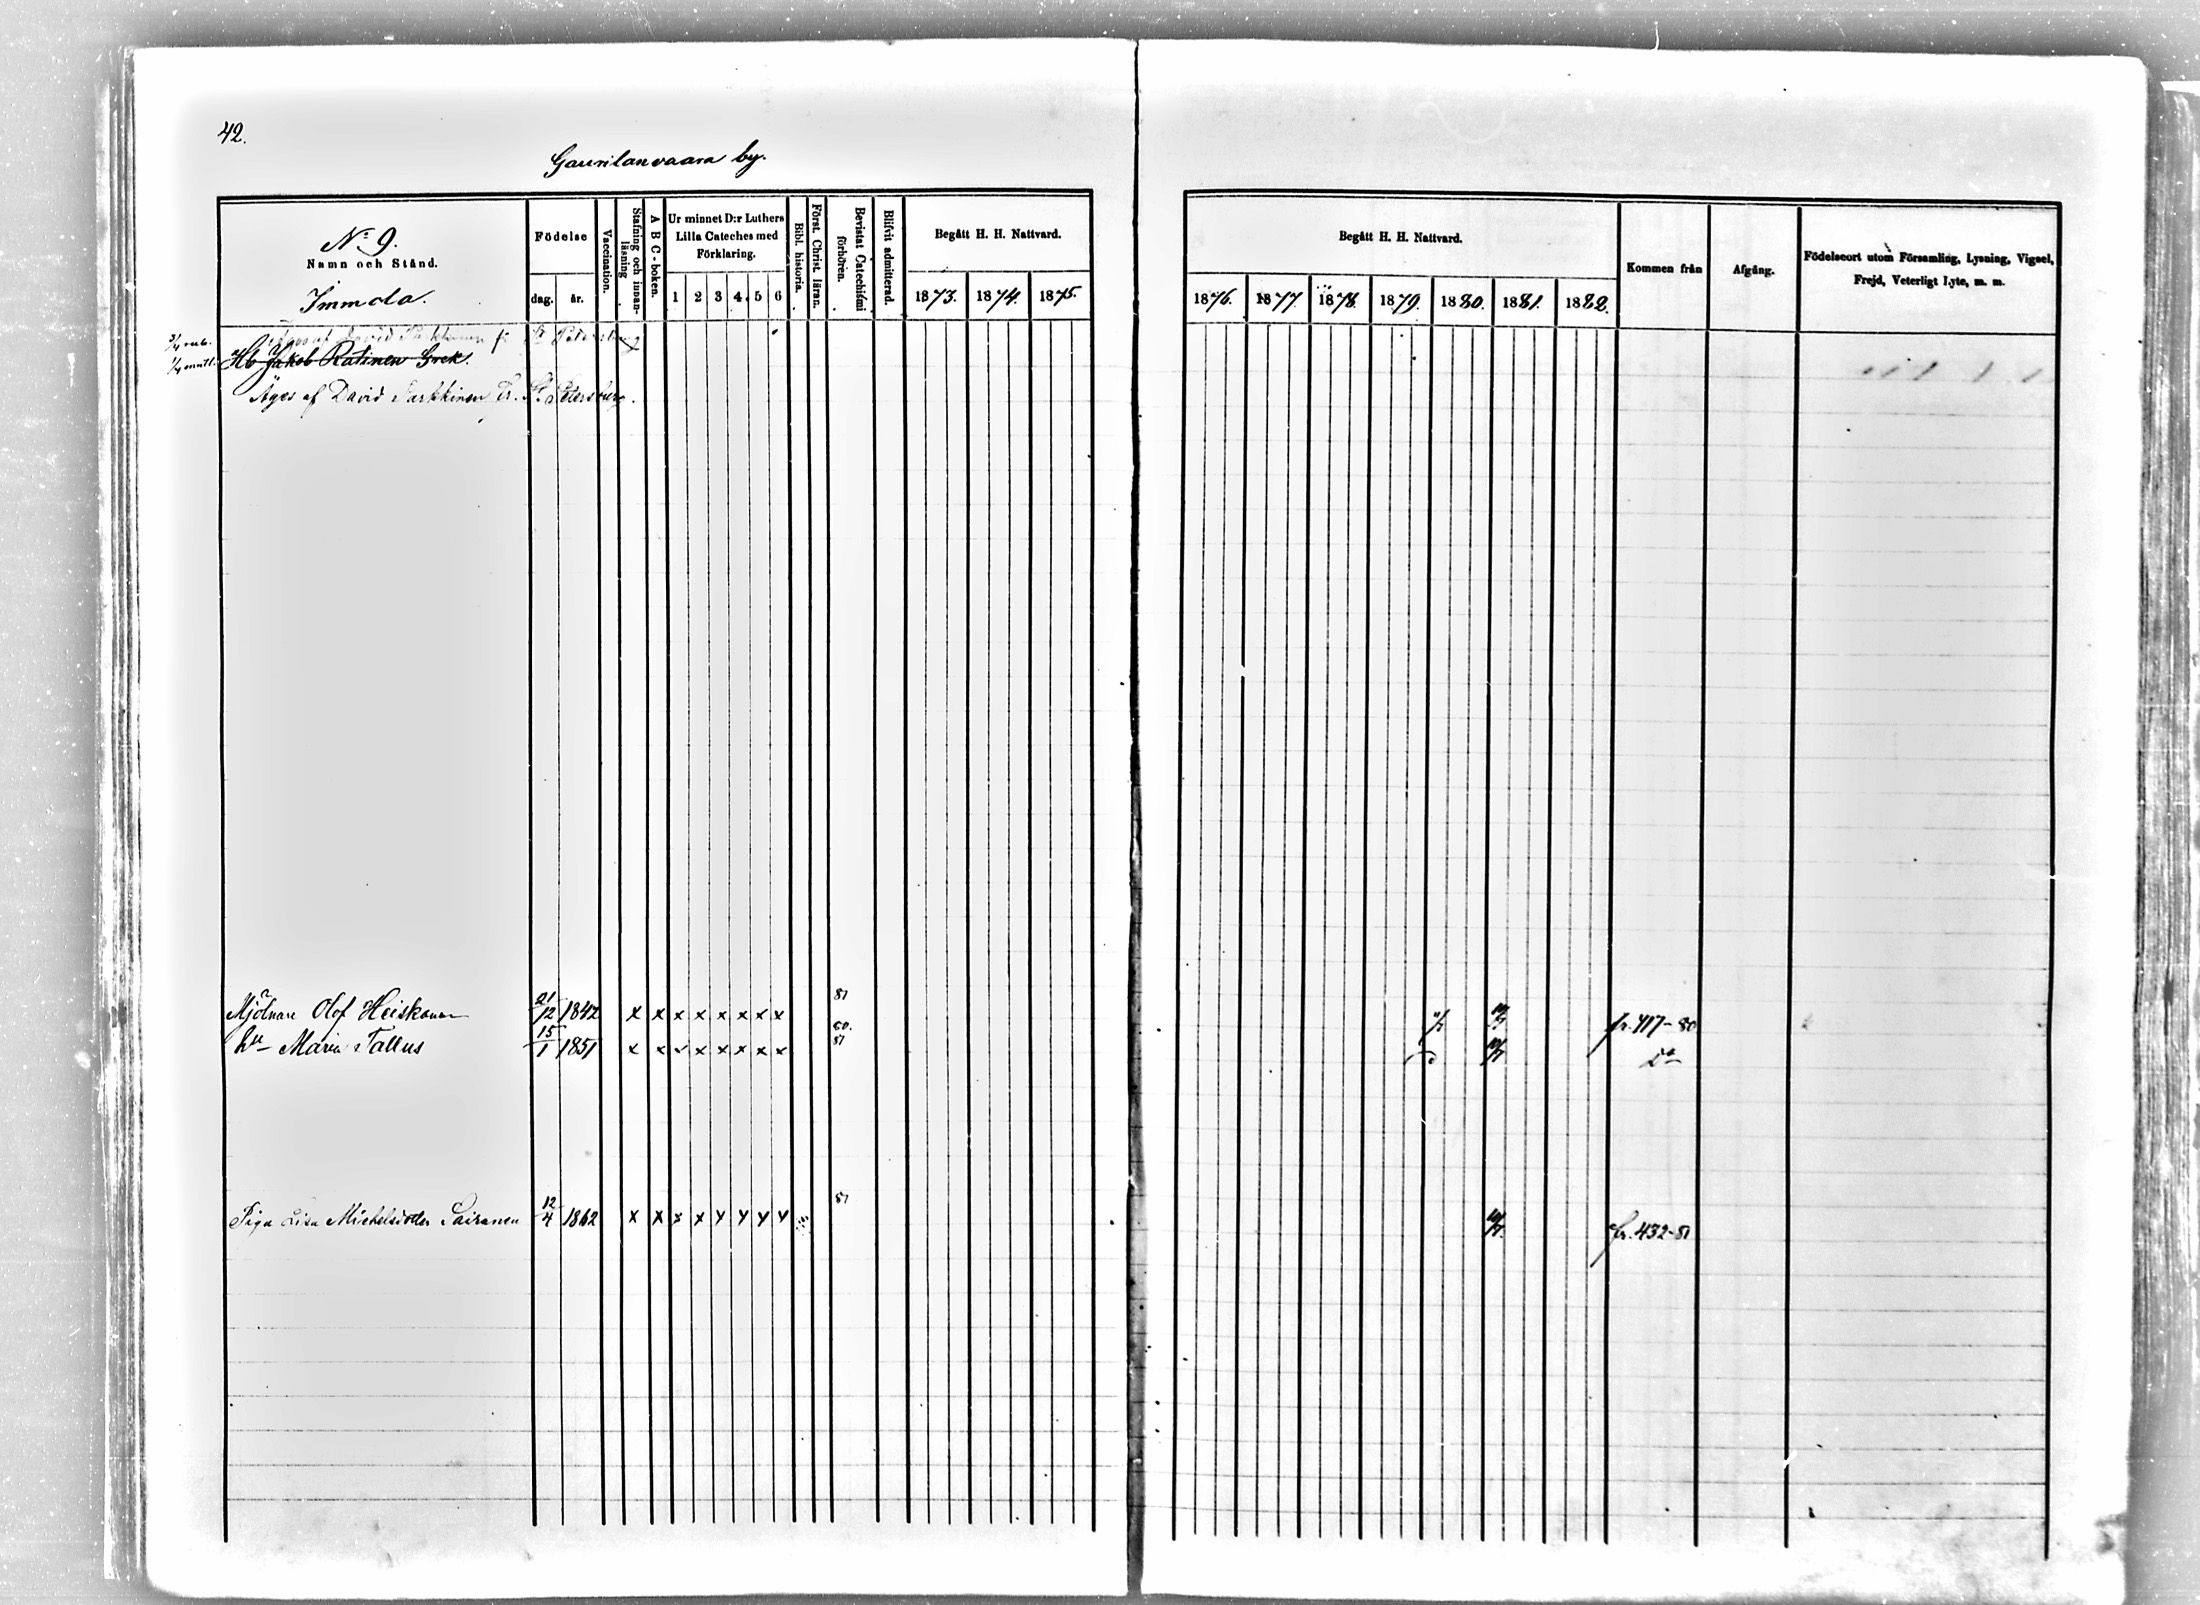 42.
Gaurilanvaara by.
No 9.
Namn och Stånd.
Immola.
Födelse
dag. år.
Vaccination.
Stafning och innan-läsning
A B C-boken.
Ur minnet D:r Luthers
Lilla Cateches med
Förklaring.
1 2 3 4 5 6
Bibl. historia.
Först. Christ. läran.
Bevistat Catechismi förhören.
Blifvit admitterad.
Begått H. H. Nattvard.
1873. 1874. 1875.
Begått H. H. Nattvard.
1876. 1877. 1878. 1879. 1880. 1881. 1882.
Kommen från
Afgång.
Födelseort utom Församling, Lysning, Vigsel,
Frejd, Veterligt Lyte, m. m.
af David Parkkinen fr. St Petersburg
1/4 mantl. Hb Jakob Ratinen Grek.
Äges af David Parkkinen fr. St. Petersburg.
Mjölnare Olof Heiskanen 21/12 1842 x x x x x x x x 81 fr. 417-80
hu Maria Tallus 15/1 1851 x x x x x x x x 80. 81 Do
Piga Lisa Michelsdotter Sairanen 12/4 1862 x x x x x x x x 81 fr. 432-81